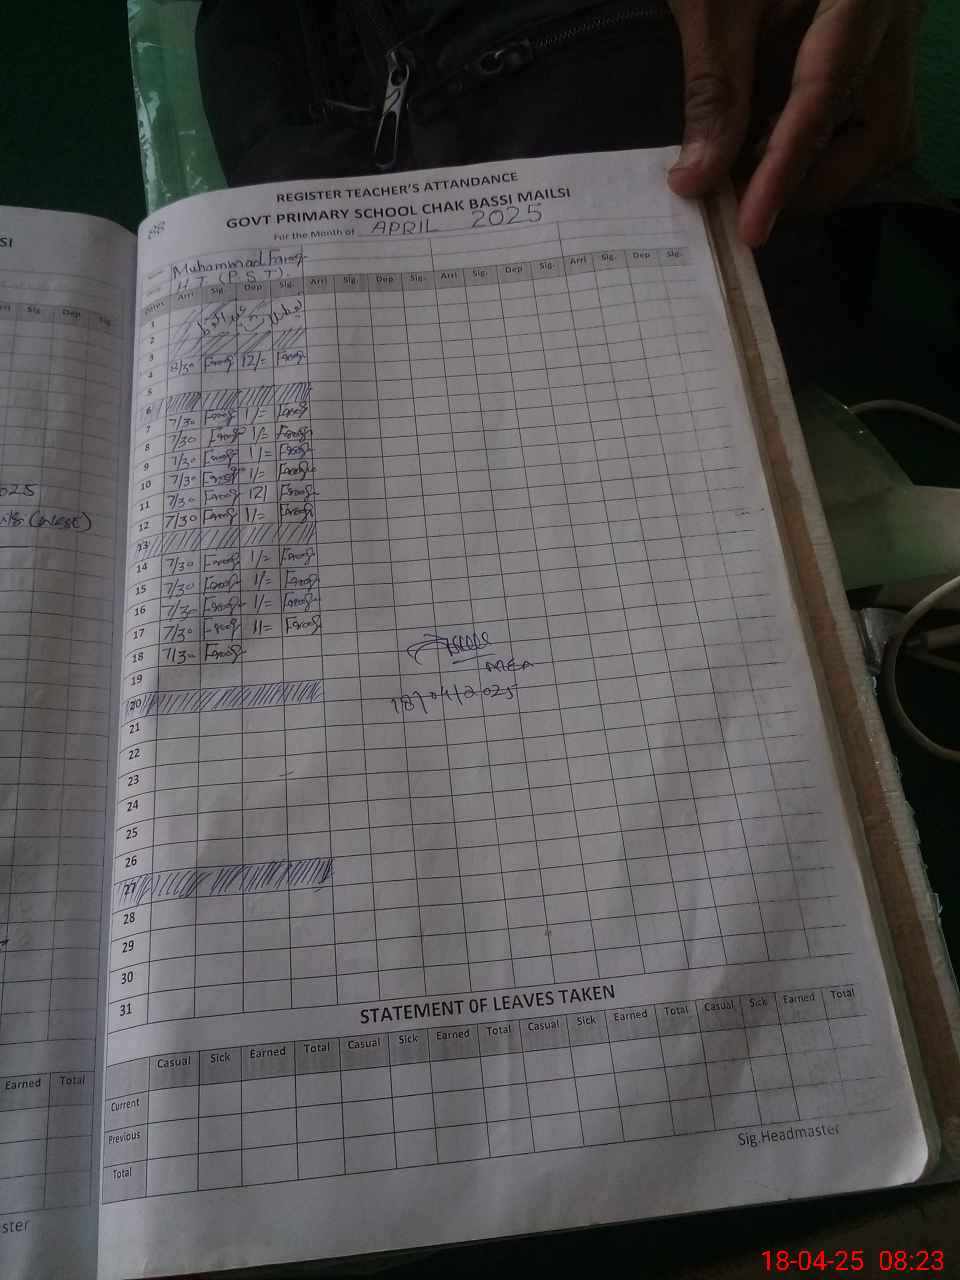 REGISTER TEACHER'S ATTANDANCE
GOVT PRIMARY SCHOOL CHAK BASSI MAILSI
For the Month of APRIL 2025
88
Muhammad Farooq
H.T (P.S.T).
Dates Arri Sig. Dep Sig. Arri Sig. Dep Sig. Arri Sig. Dep Sig. Arri Sig. Dep Sig.
1
2
3
4 8/30 Farooq 12/= Farooq
5
6
7 7/30 Farooq 1/= Farooq
8 7/30 Farooq 1/= Farooq
9 7/30 Farooq 1/= Farooq
10 7/30 Farooq 1/= Farooq
11 7/30 Farooq 12/ Farooq
12 7/30 Farooq 1/= Farooq
13
14 7/30 Farooq 1/= Farooq
15 7/30 Farooq 1/= Farooq
16 7/30 Farooq 1/= Farooq
17 7/30 Farooq 1/= Farooq
18 7/30 Farooq
19
MEA
20
18/04/2025
21
22
23
24
25
26
27
28
29
30
31
STATEMENT OF LEAVES TAKEN
Casual Sick Earned Total Casual Sick Earned Total Casual Sick Earned Total Casual Sick Earned Total
Current
Previous
Total
Sig.Headmaster
SI
Sig. Dep Sig.
025
Earned Total
ster
18-04-25 08:23